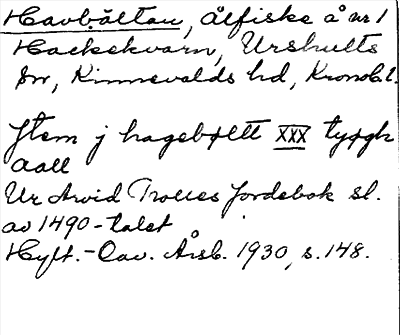 Havbältan, ålfiske å nr 1
Hackekvarn, Urshults
sn, Kinnevalds hd, Kronob. l.
Jtem j hagebøltt XXX tyøgh
aall
Ur Arvid Trolles Jordebok sl.
av 1490-talet
Hylt.-Cav. Årsb. 1930, s. 148.